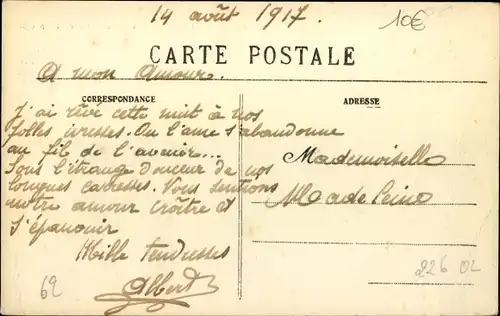 14 août 1917.
10€
CARTE POSTALE
A mon Amour.
CORRESPONDANCE
ADRESSE
J'ai rêvé cette nuit à nos
folles ivresses. Ou l'ame s'abandonne
au fil de l'avenir...
Sous l'étrange douceur de nos
longues caresses. Nous sentions
notre amour croître et
s'épanouir
Mille tendresses
Albert
Mademoiselle
Madeleine
62
226 02